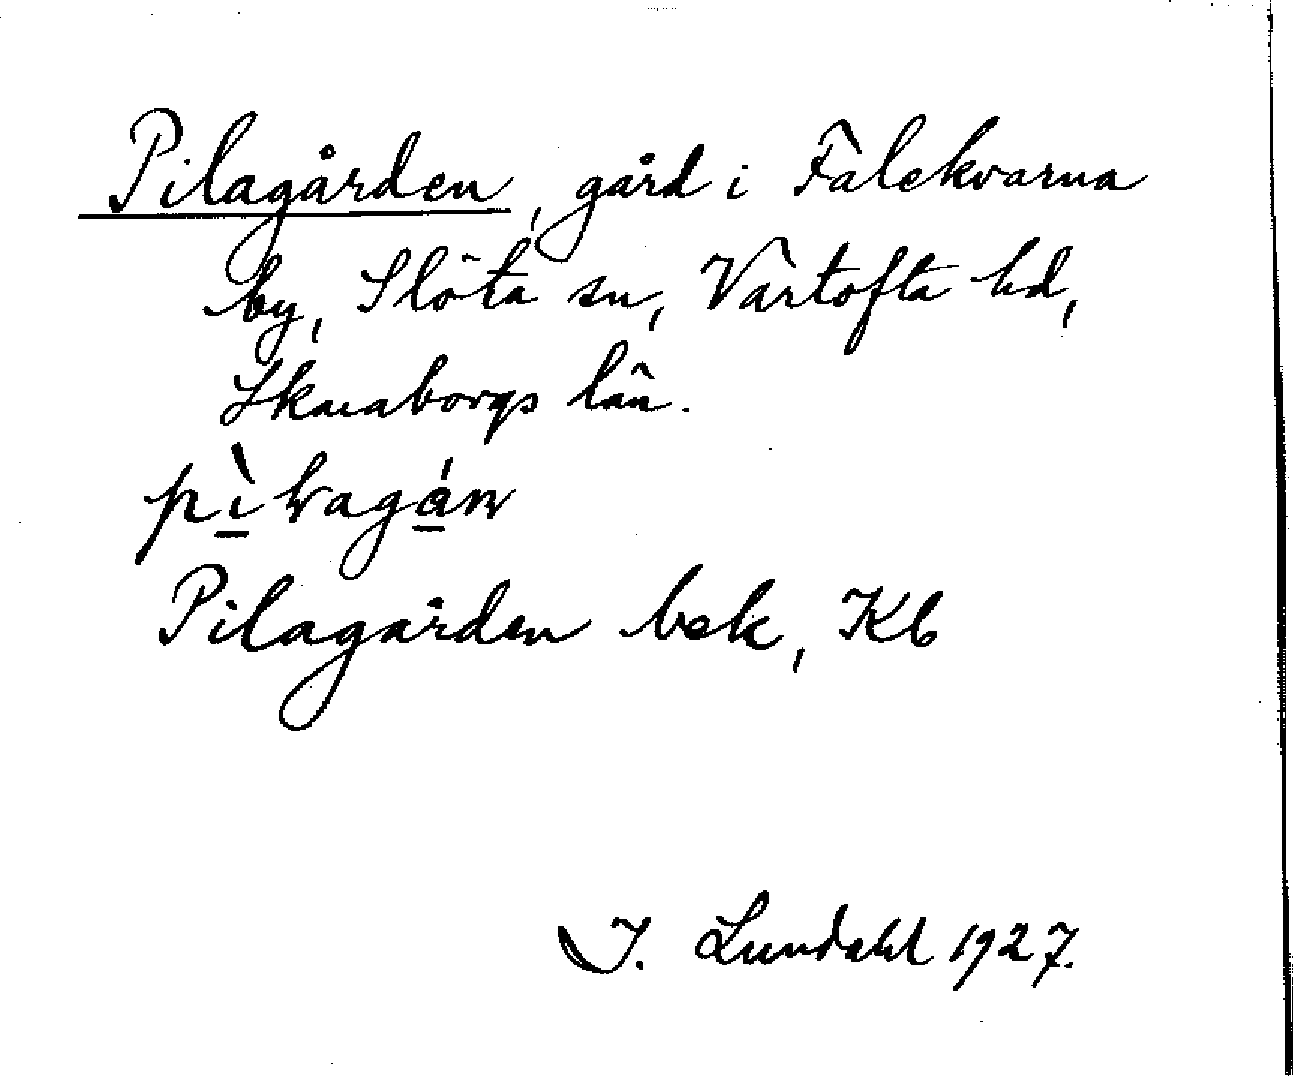 Pilagården, gård i Falekvarna
by, Slöta sn, Vartofta hd,
Skaraborgs län.
Pilagården bek, Kb
I. Lundahl 1927.